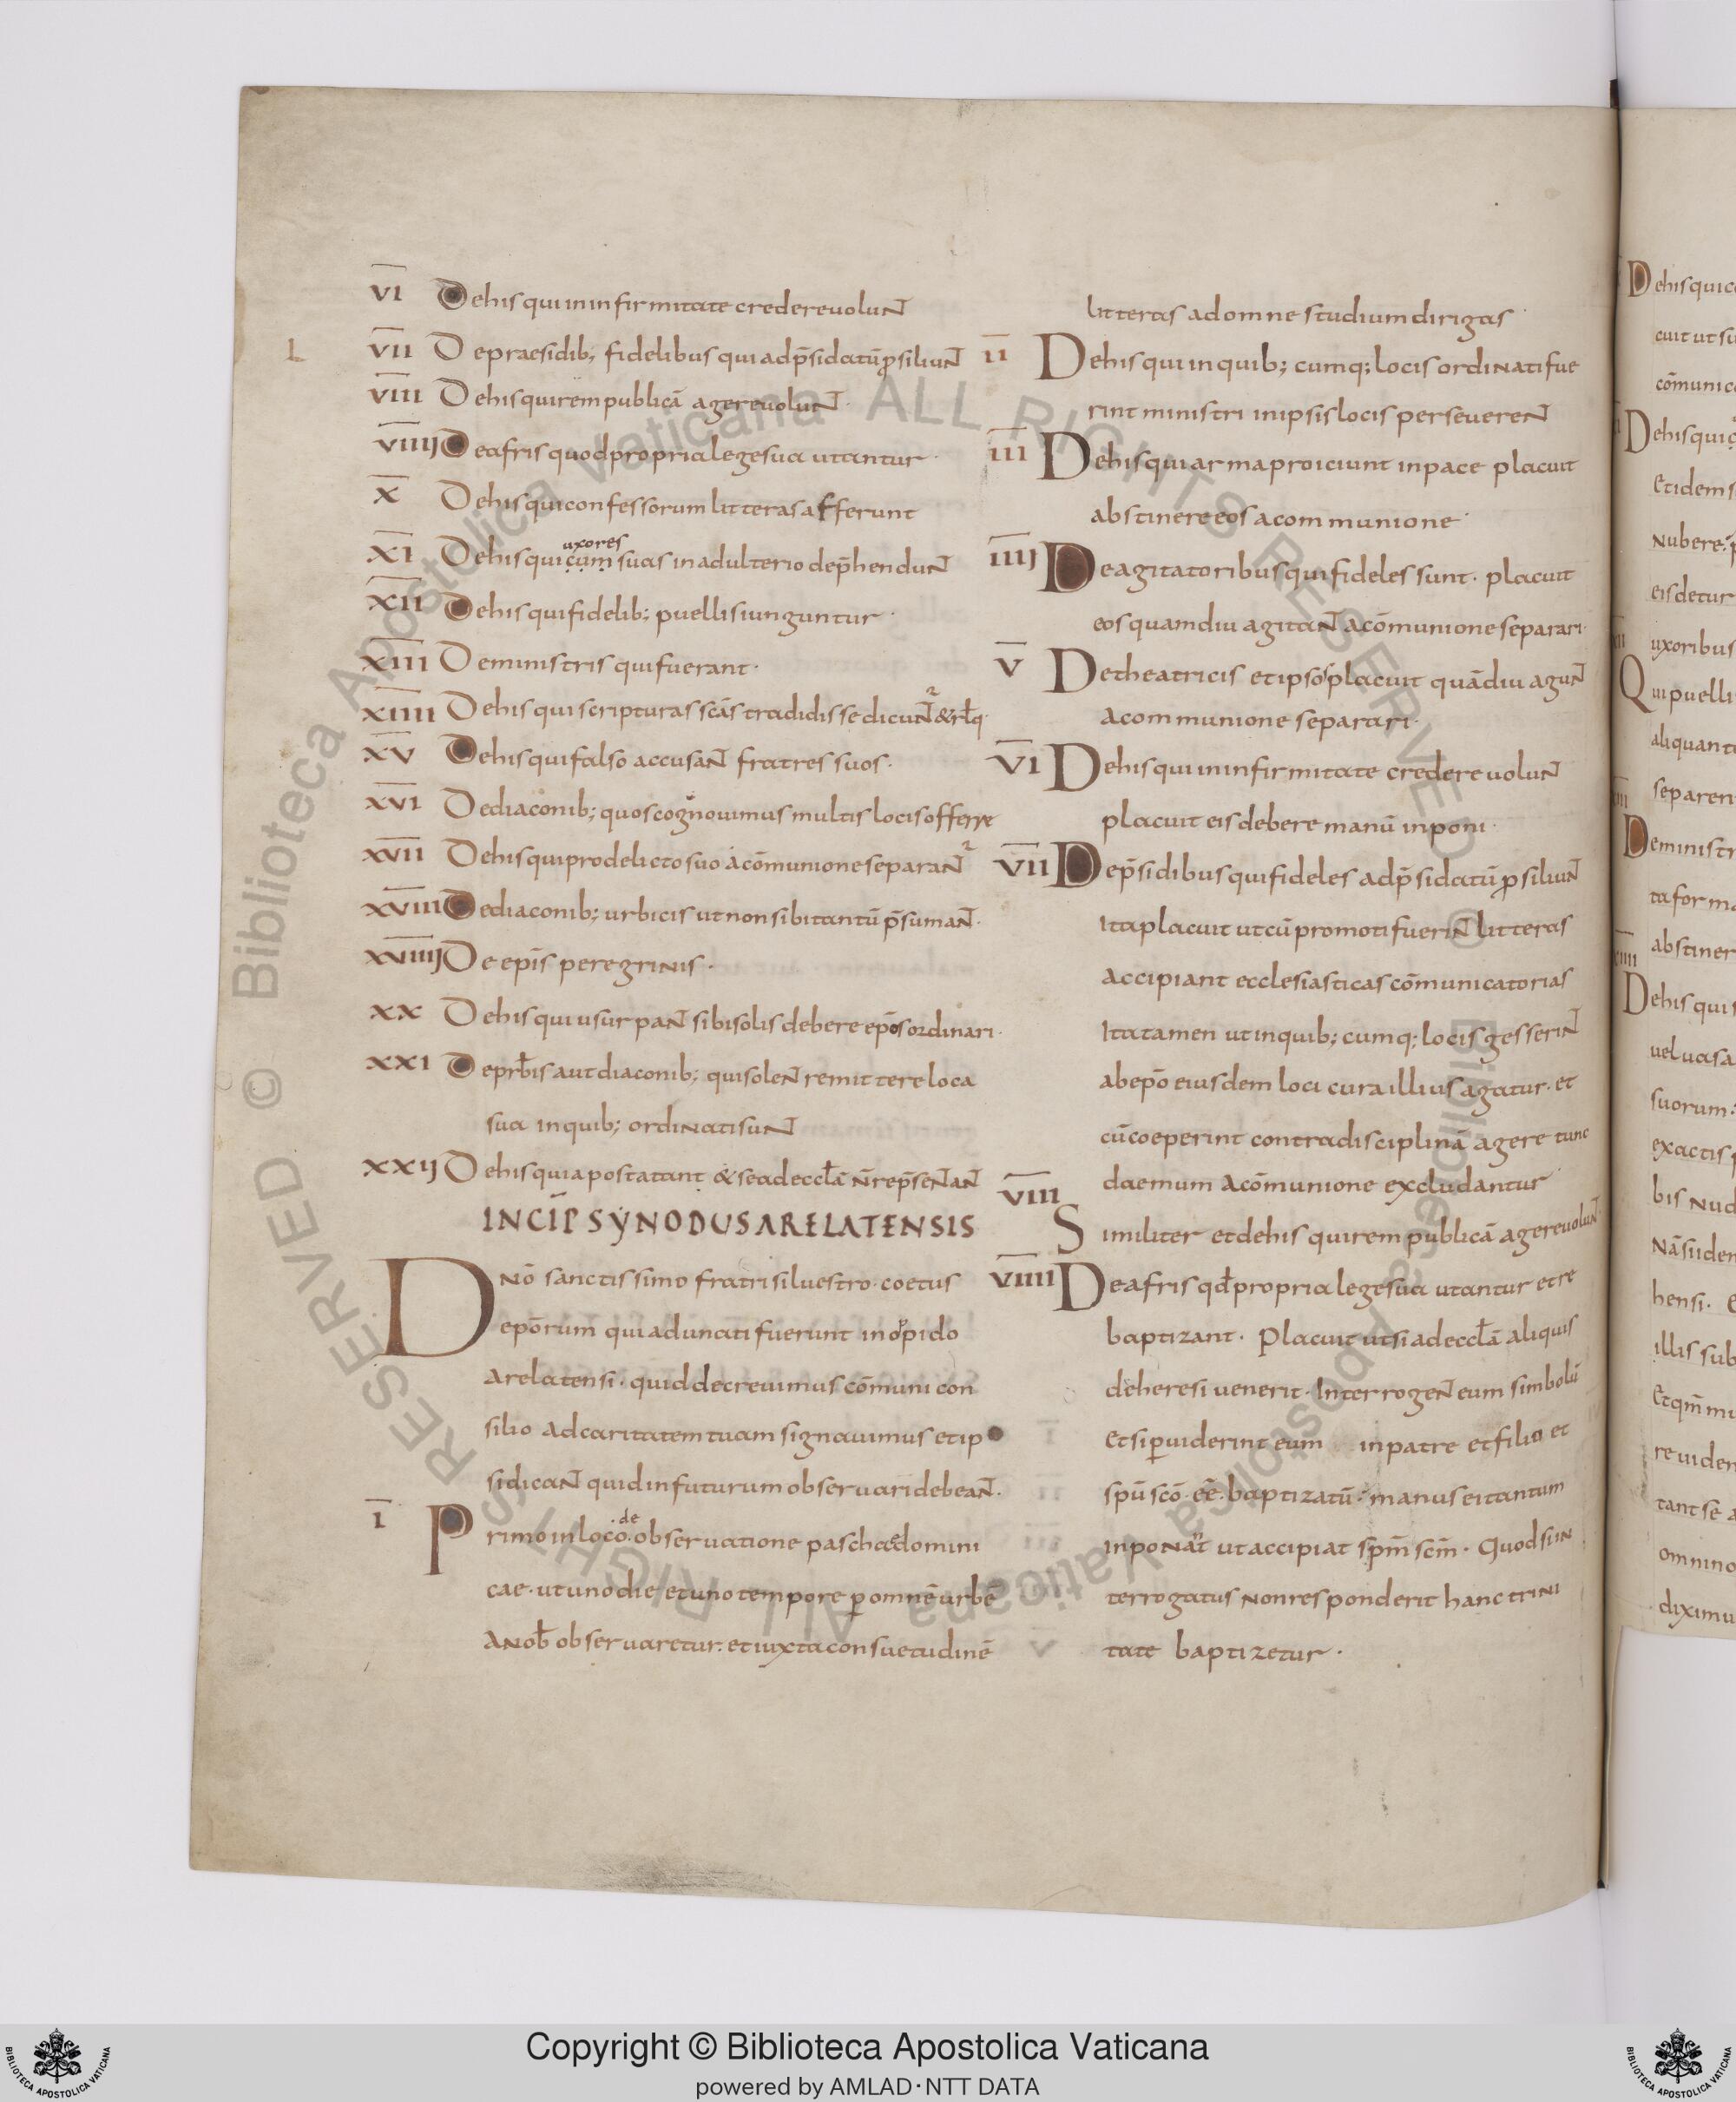 VI Dehis qui in infirmitate credere uolunt
VII De praesidib; fidelibus qui ad p̄sidatū ꝓsiliunt
L
VIII De his qui rem publicā agere uolunt
VIIIJ De afris quod propria lege sua utantur
X De his qui confessorum litteras afferunt
uxores
XI De his qui cum suas in adulterio dep̄hendunt
XII De his qui fidelib; puellis iunguntur
XIII De ministris qui fuerant
XIIII De his qui scripturas scās tradidisse dicunt̄ & rl̄q
XV De his qui falso accusant fratres suos.
XVI De diaconib; quos cognouimus multis locis offerre
XVII De his qui pro delicto suo a cōmunione separant̄
XVIII De diaconib; urbicis ut non sibi tantū p̄sumant.
XVIIIJ De ep̄is peregrinis.
XX De his qui usurpant sibi solis debere ep̄os ordinari.
XXI De prb̄is aut diaconib; qui solent remittere loca
sua in quib; ordinati sunt
XXIJ De his qui apostatant & se ad eccl̄ā n̄ rep̄sentant
INCIP̄ SYNODUS ARELATENSIS
Dnō sanctissimo fratri siluestro. coetus
ep̄orum qui adunati fuerunt in oppido
arelatensi. quid decreuimus cōmuni con
silio ad caritatem tuam signauimus et ip
si dicant quid in futurum obseruari debeant.
I Primo in loco. de obseruatione paschae domini
cae. ut uno die et uno tempore ꝑ omnē urbē
a nob̄ obseruaretur. et iuxta consuetudinē
litteras ad omne studium dirigas
II De his qui in quib; cumq; locis ordinati fue
rint ministri in ipsis locis perseuerent
III De his qui arma proiciunt in pace placuit
abstinere eos a communione
IIIJ De agitatoribus qui fideles sunt. placuit
eos quamdiu agitant a cōmunione separari
V De theatricis et ipsos placuit quādiu agunt
a communione separari.
VI De his qui in infirmitate credere uolunt
placuit eis debere manū inponi
VII De p̄sidibus qui fideles ad p̄sidatū ꝓsiliunt
Ita placuit ut cū promoti fuerint litteras
accipiant ecclesiasticas cōmunicatorias
Ita tamen ut in quib; cumq; locis gesserint
ab ep̄o eiusdem loci cura illius agatur. et
cū coeperint contra disciplinā agere tunc
daemum a cōmunione excludantur
VIII Similiter et de his qui rem publicā agere uolunt
VIIII De afris qd̄ propria lege sua utantur et re
baptizant. Placuit ut si ad eccl̄ā aliquis
de heresi uenerit. Interrogent eum simbolū
Et si ꝑuiderint eum in patre et filio et
sp̄ū scō. eē. baptizatū. manus ei tantum
inponat̄ ut accipiat sp̄m scm̄. Quod si in
terrogatus non responderit hanc trini
tate baptizetur.
Dehis qui
cuit ut
cōmunic
Dehis qui
Et idem
Nubere.
eis detur
uxoribus
Qui puelli
aliquant
separen
Deministr
ta forma
abstiner
Dehis qui
uel uasa
suorum
exactis
bis nud
hensi.
illis sub
re uiden
tant se a
omnino
diximu
© Biblioteca Apostolica Vaticana ALL RIGHTS RESERVED
Copyright © Biblioteca Apostolica Vaticana
powered by AMLAD·NTT DATA
BIBLIOTECA APOSTOLICA VATICANA
BIBLIOTECA APOSTOLICA VATICANA